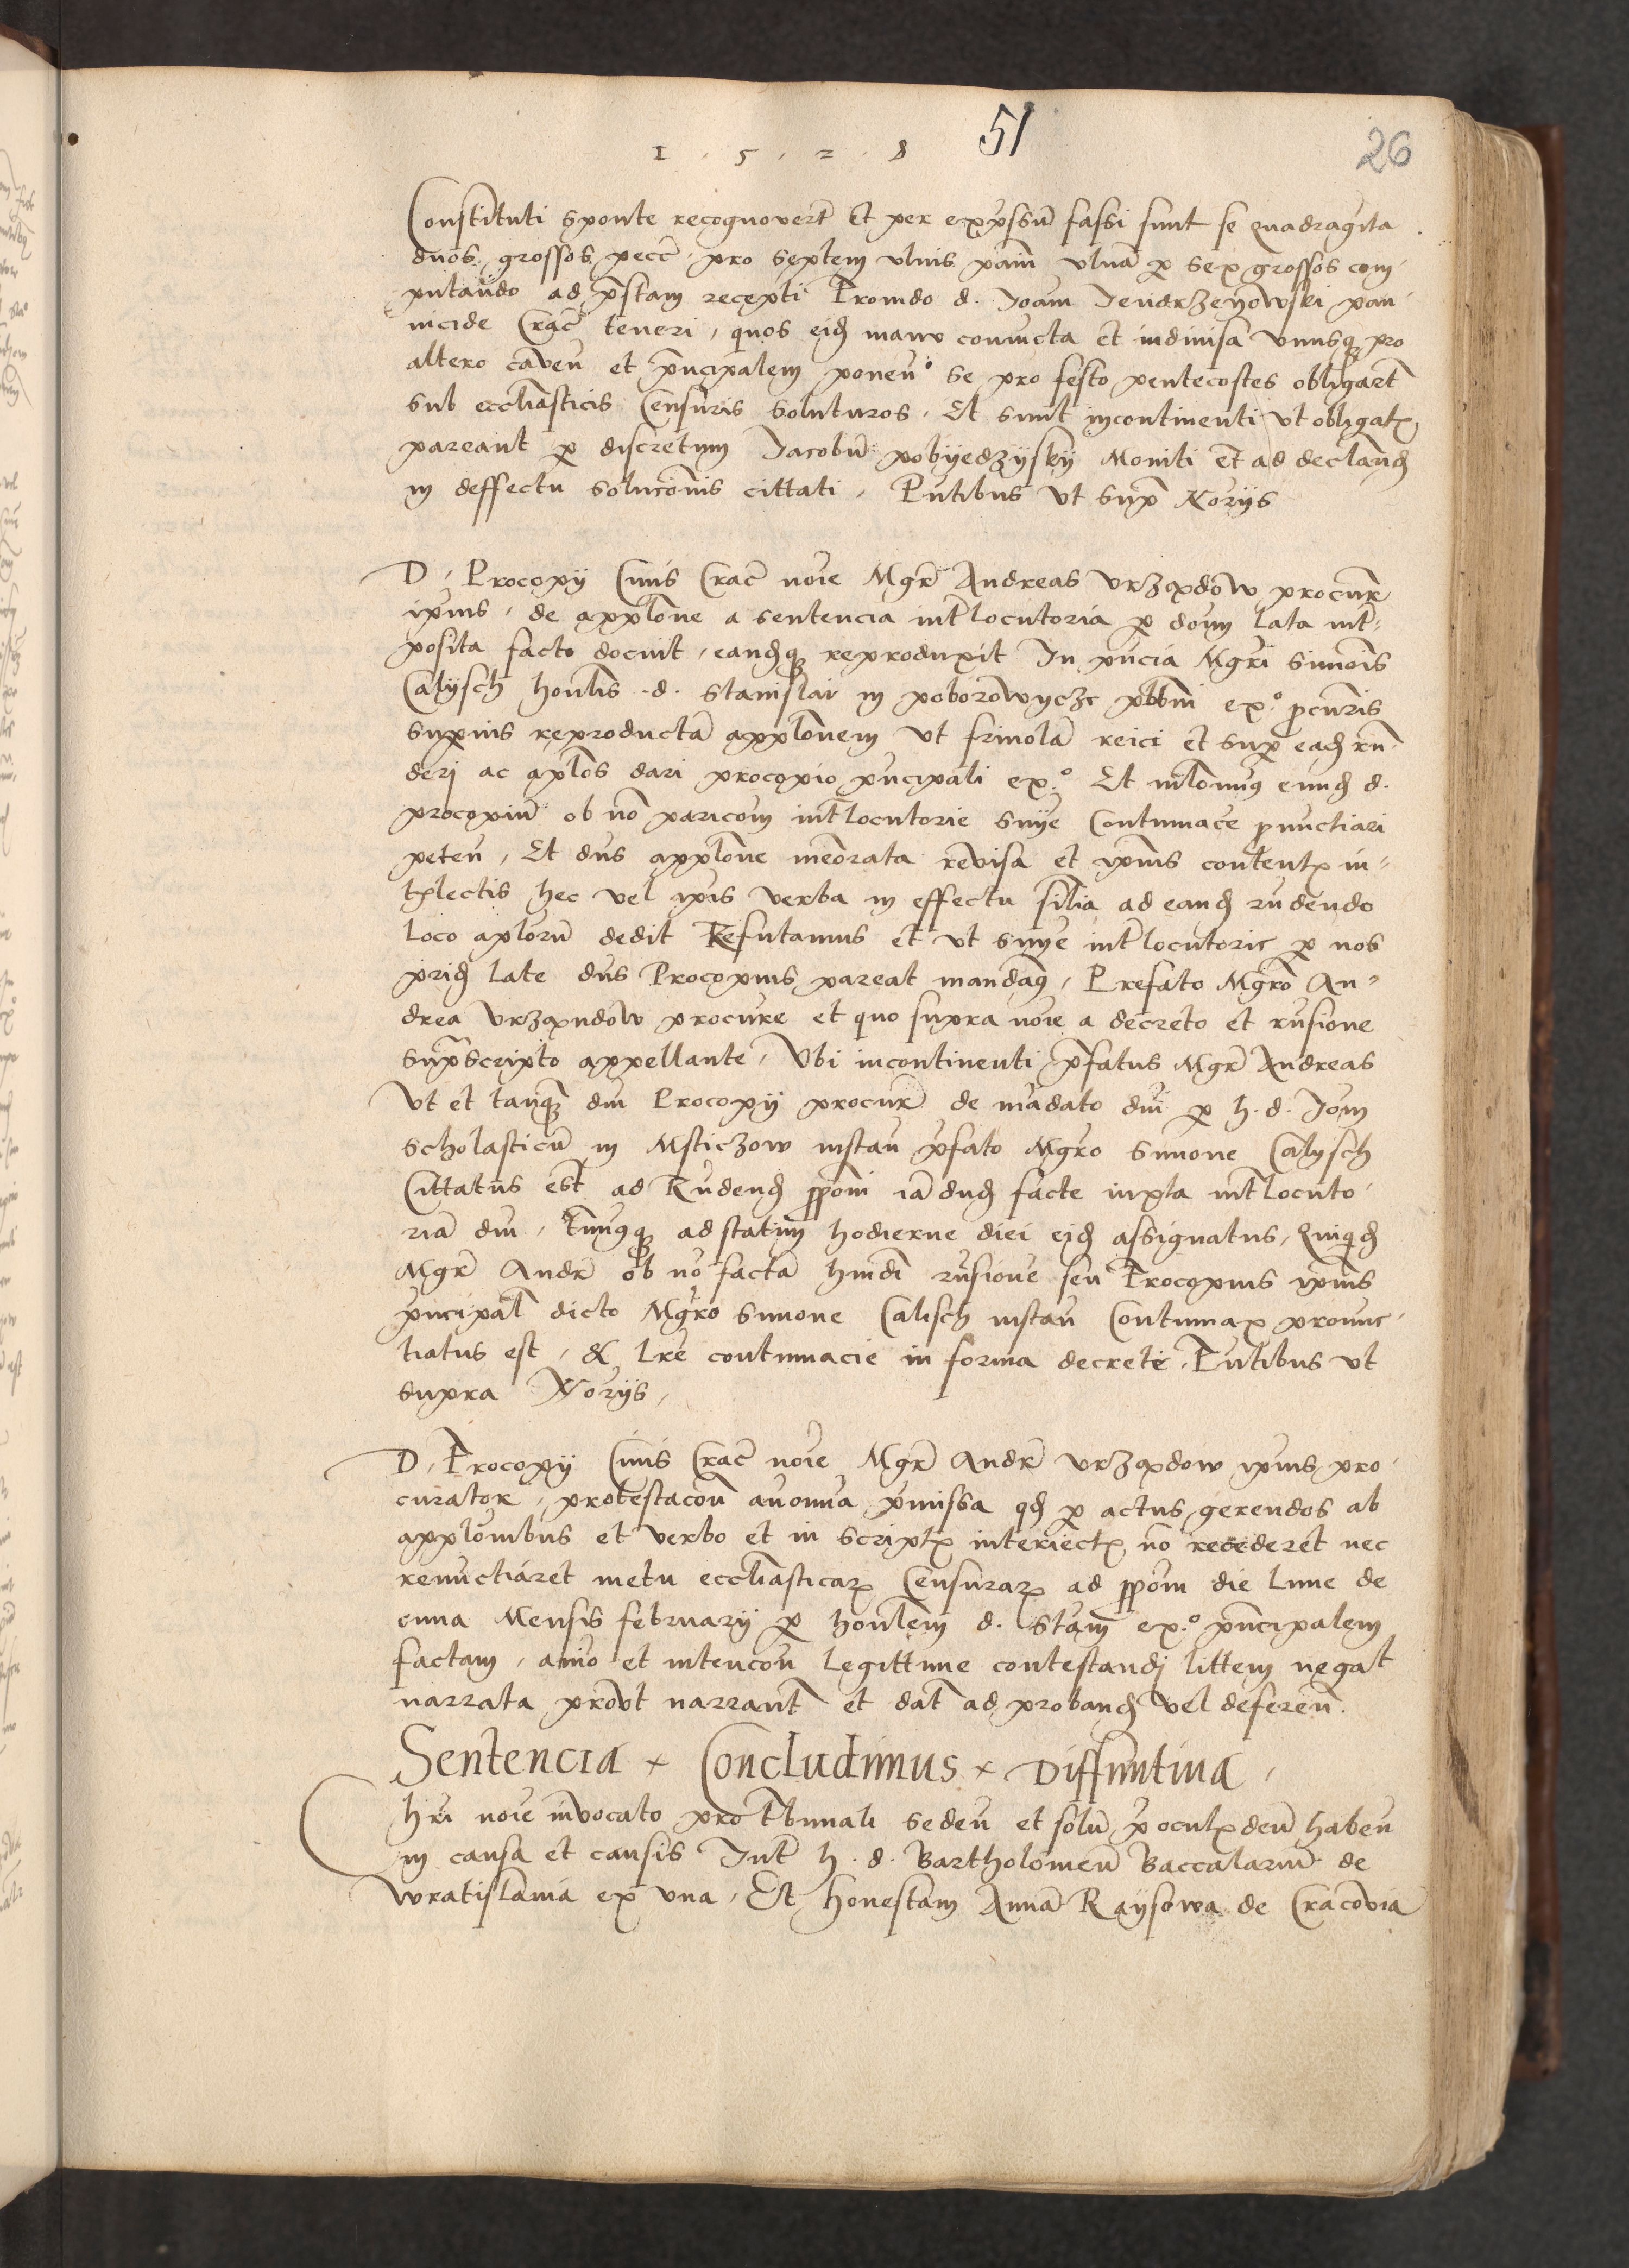 1 · 5 · 2 · 8 51 26
Constituti sponte recognovert Et per expssu fassi sunt se quadragita
duos grossos pecc pro septem ulnis pani ulna p sex grossos com-
putando ad pstam recepti Provido d. Joani Jendrzeyowski pan-
nicide Crac teneri, quos eid manu coniucta et indivisa unusq pro
altero caven et pncipalem ponen se pro festo pentecostes obligart
sub eccliasticis Censuris soluturos. Et sunt incontinenti ut obligat
pareant p discretum Jacobu pobyedzysky Moniti et ad decland
in deffectu soluconis cittati, Pntibus ut sup Noriis
D. Procopy Civis Crac noie Mgr Andreas Urzapdow procur
ipius, de applone a sentencia intlocutoria p dom lata int-
posita facto docuit, eandq reproduxit In pncia Mgri Simois
Calysch honlis d. Stanislai in poborowycze pbbri ex° pcuris
supius reproducta applonem ut frivola reici et sup ead rn-
deri ac aplos dari procopio pncipali ex° Et nlominus eund d.
procopiu ob no paricom intlocutorie suye Contumace pnuctiari
peten, Et dns applone meorata revisa et ipius content in-
tlectis hec vel ipis verba in effectu silia ad eand rndendo
loco aploru dedit Refutamus et ut suye intlocutorie p nos
prid late dns Procopius pareat mandam, Prefato Mgro An-
drea Urzapndow procure et quo supra noie a decreto et rnsione
supscripto appellante, Ubi incontinenti pfatus Mgr Andreas
Ut et tanq dni Procopy procur de madato dni p h. d. Jom
scholasticu in Msticzow instan pfato Mgro Simone Calysch
Cittatus est ad Rndend ppom ia dud facte iuxta intlocuto-
ria dni, tmusq ad statim hodierne diei eid assignatus, Quiqd
Mgr Andr ob no facta hmdi rnsione seu Procopius ipius
pncipal dicto Mgro Simone Calisch instan Contumax pronuc-
tiatus est, & lre contumacie in forma decrete. Pntibus ut
supra Noriis,
D. Procopy Civis Crac noie Mgr Andr Urzapdow ipius pro-
curator, protestacon anonua pmissa qd p actus gerendos ab
applonibus et verbo et in script interiect no recederet nec
renuctiaret metu eccliasticar Censurar ad ppom die lune de
cima Mensis february p honlem d. Stam ex° pncipalem
factam, aio et intencon legittime contestandi littem negat
narrata prout narrant et dat ad proband vel deferen.
Sentencia × Concludimus × Diffinitiva,
Chri noie invocato pro tbunali seden et solu p ocul deu haben
in causa et causis Int h. d. Bartholomeu Baccalariu de
wratislavia ex una, Et honestam Anna Raysowa de Cracovia